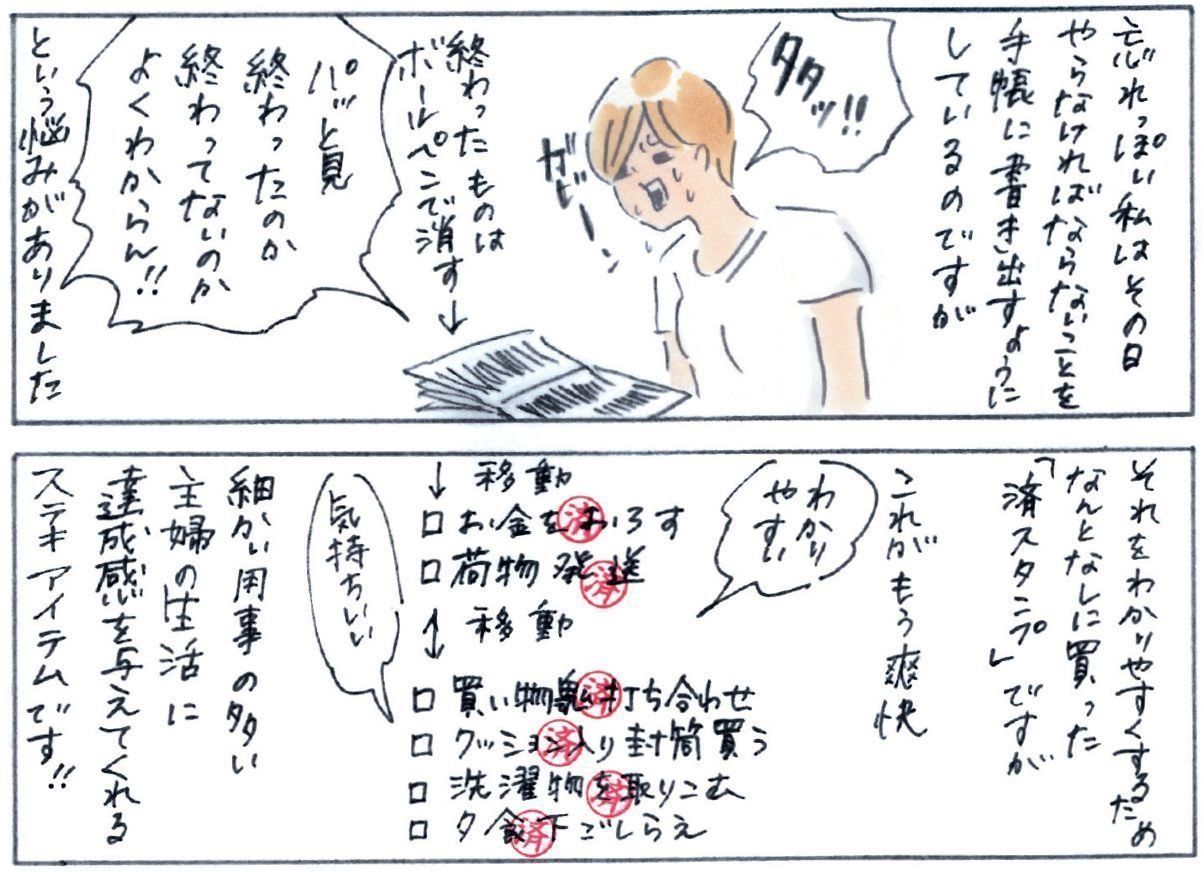 忘れっぽい私はその日
やらなければならないことを
手帳に書き出すように
しているのですが
タタッ!!
ガビーン
終わったものは
ボールペンで消す↓
パッと見
終わったのか
終わってないのか
よくわからん!!
という悩みがありました
それをわかりやすくするため
なんとなしに買った
「済スタンプ」ですが
これがもう爽快
わかり
やすい
↓移動
□お金をおろす
済
□荷物発送
済
↕移動
□買い物 打ち合わせ
済
□クッション入り封筒買う
済
□洗濯物を取りこむ
済
□夕飯下ごしらえ
済
気持ちいい
細かい用事の多い
主婦の生活に
達成感を与えてくれる
ステキアイテムです!!